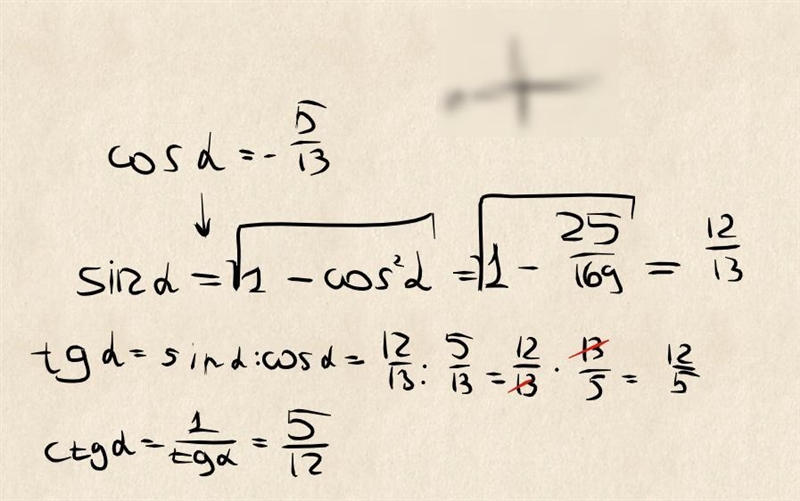 cos α = - 5/13
sin α = √(1 - cos² α) = √(1 - 25/169) = 12/13
tg α = sin α : cos α = 12/13 : 5/13 = 12/13 · 13/5 = 12/5
ctg α = 1/tg α = 5/12